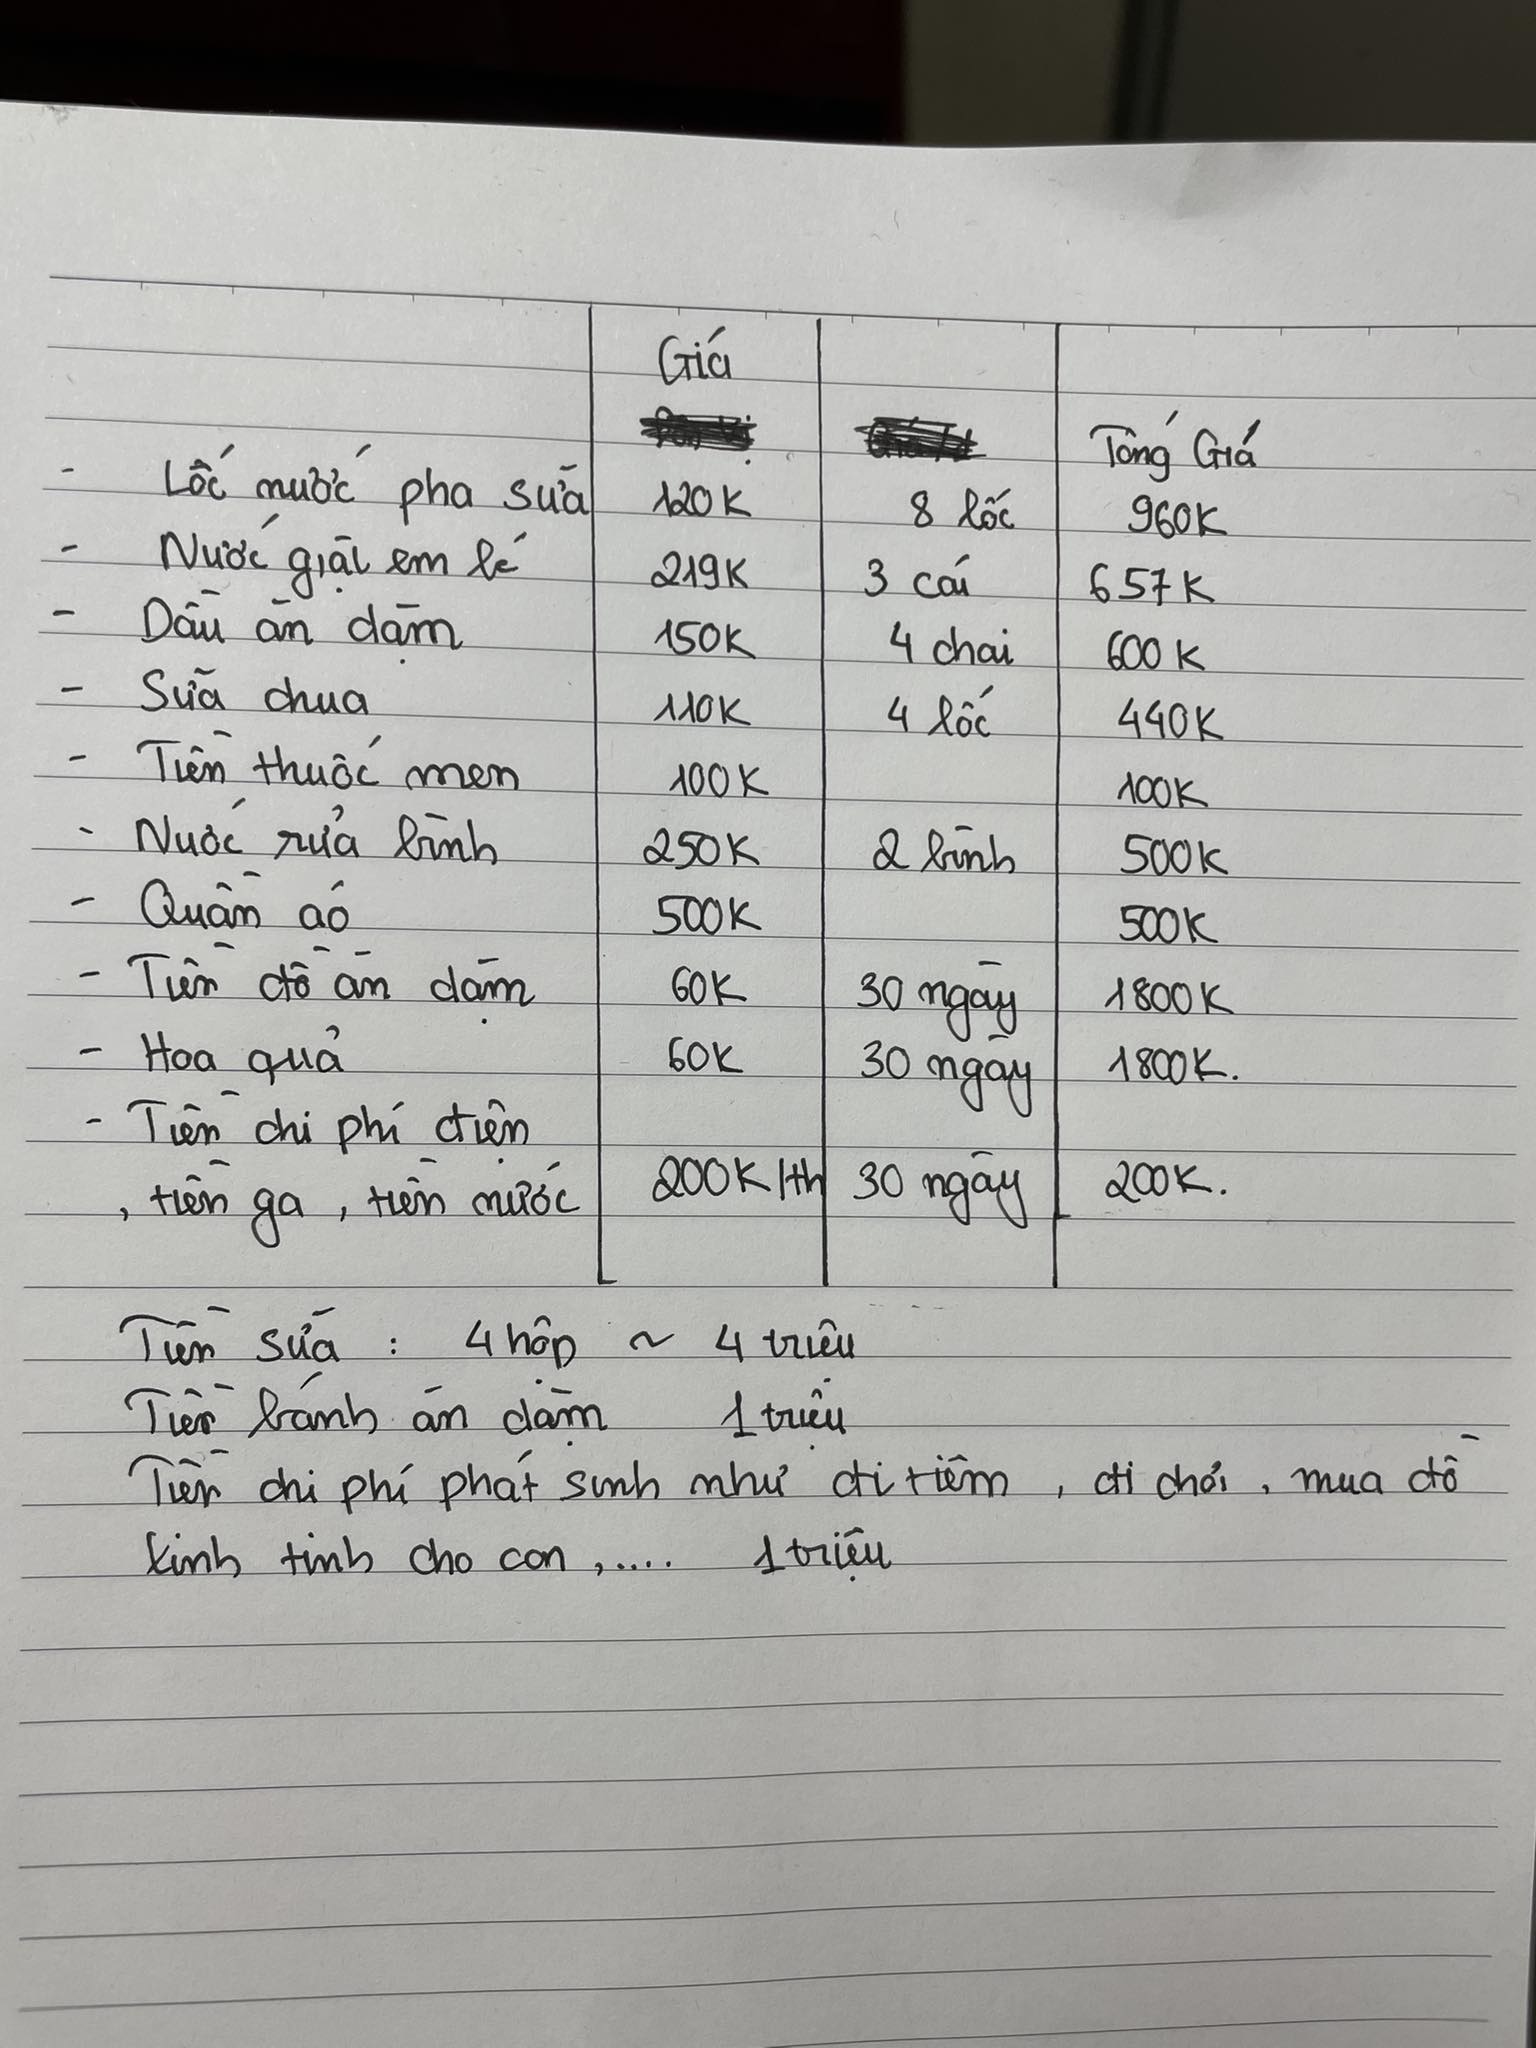 Giá
Tổng Giá
- Lốc nước pha sữa 120K 8 lốc 960K
- Nước giặt em bé 219K 3 cái 657K
- Dầu ăn dặm 150K 4 chai 600K
- Sữa chua 110K 4 lốc 440K
- Tiền thuốc men 100K 100K
- Nước rửa bình 250K 2 bình 500K
- Quần áo 500K 500K
- Tiền đồ ăn dặm 60K 30 ngày 1800K
- Hoa quả 60K 30 ngày 1800K.
- Tiền chi phí điện
, tiền ga, tiền nước 200K/th 30 ngày 200K.
Tiền sữa : 4 hộp ~ 4 triệu
Tiền bánh ăn dặm 1 triệu
Tiền chi phí phát sinh như đi tiêm, đi chơi, mua đồ
linh tinh cho con,.... 1 triệu